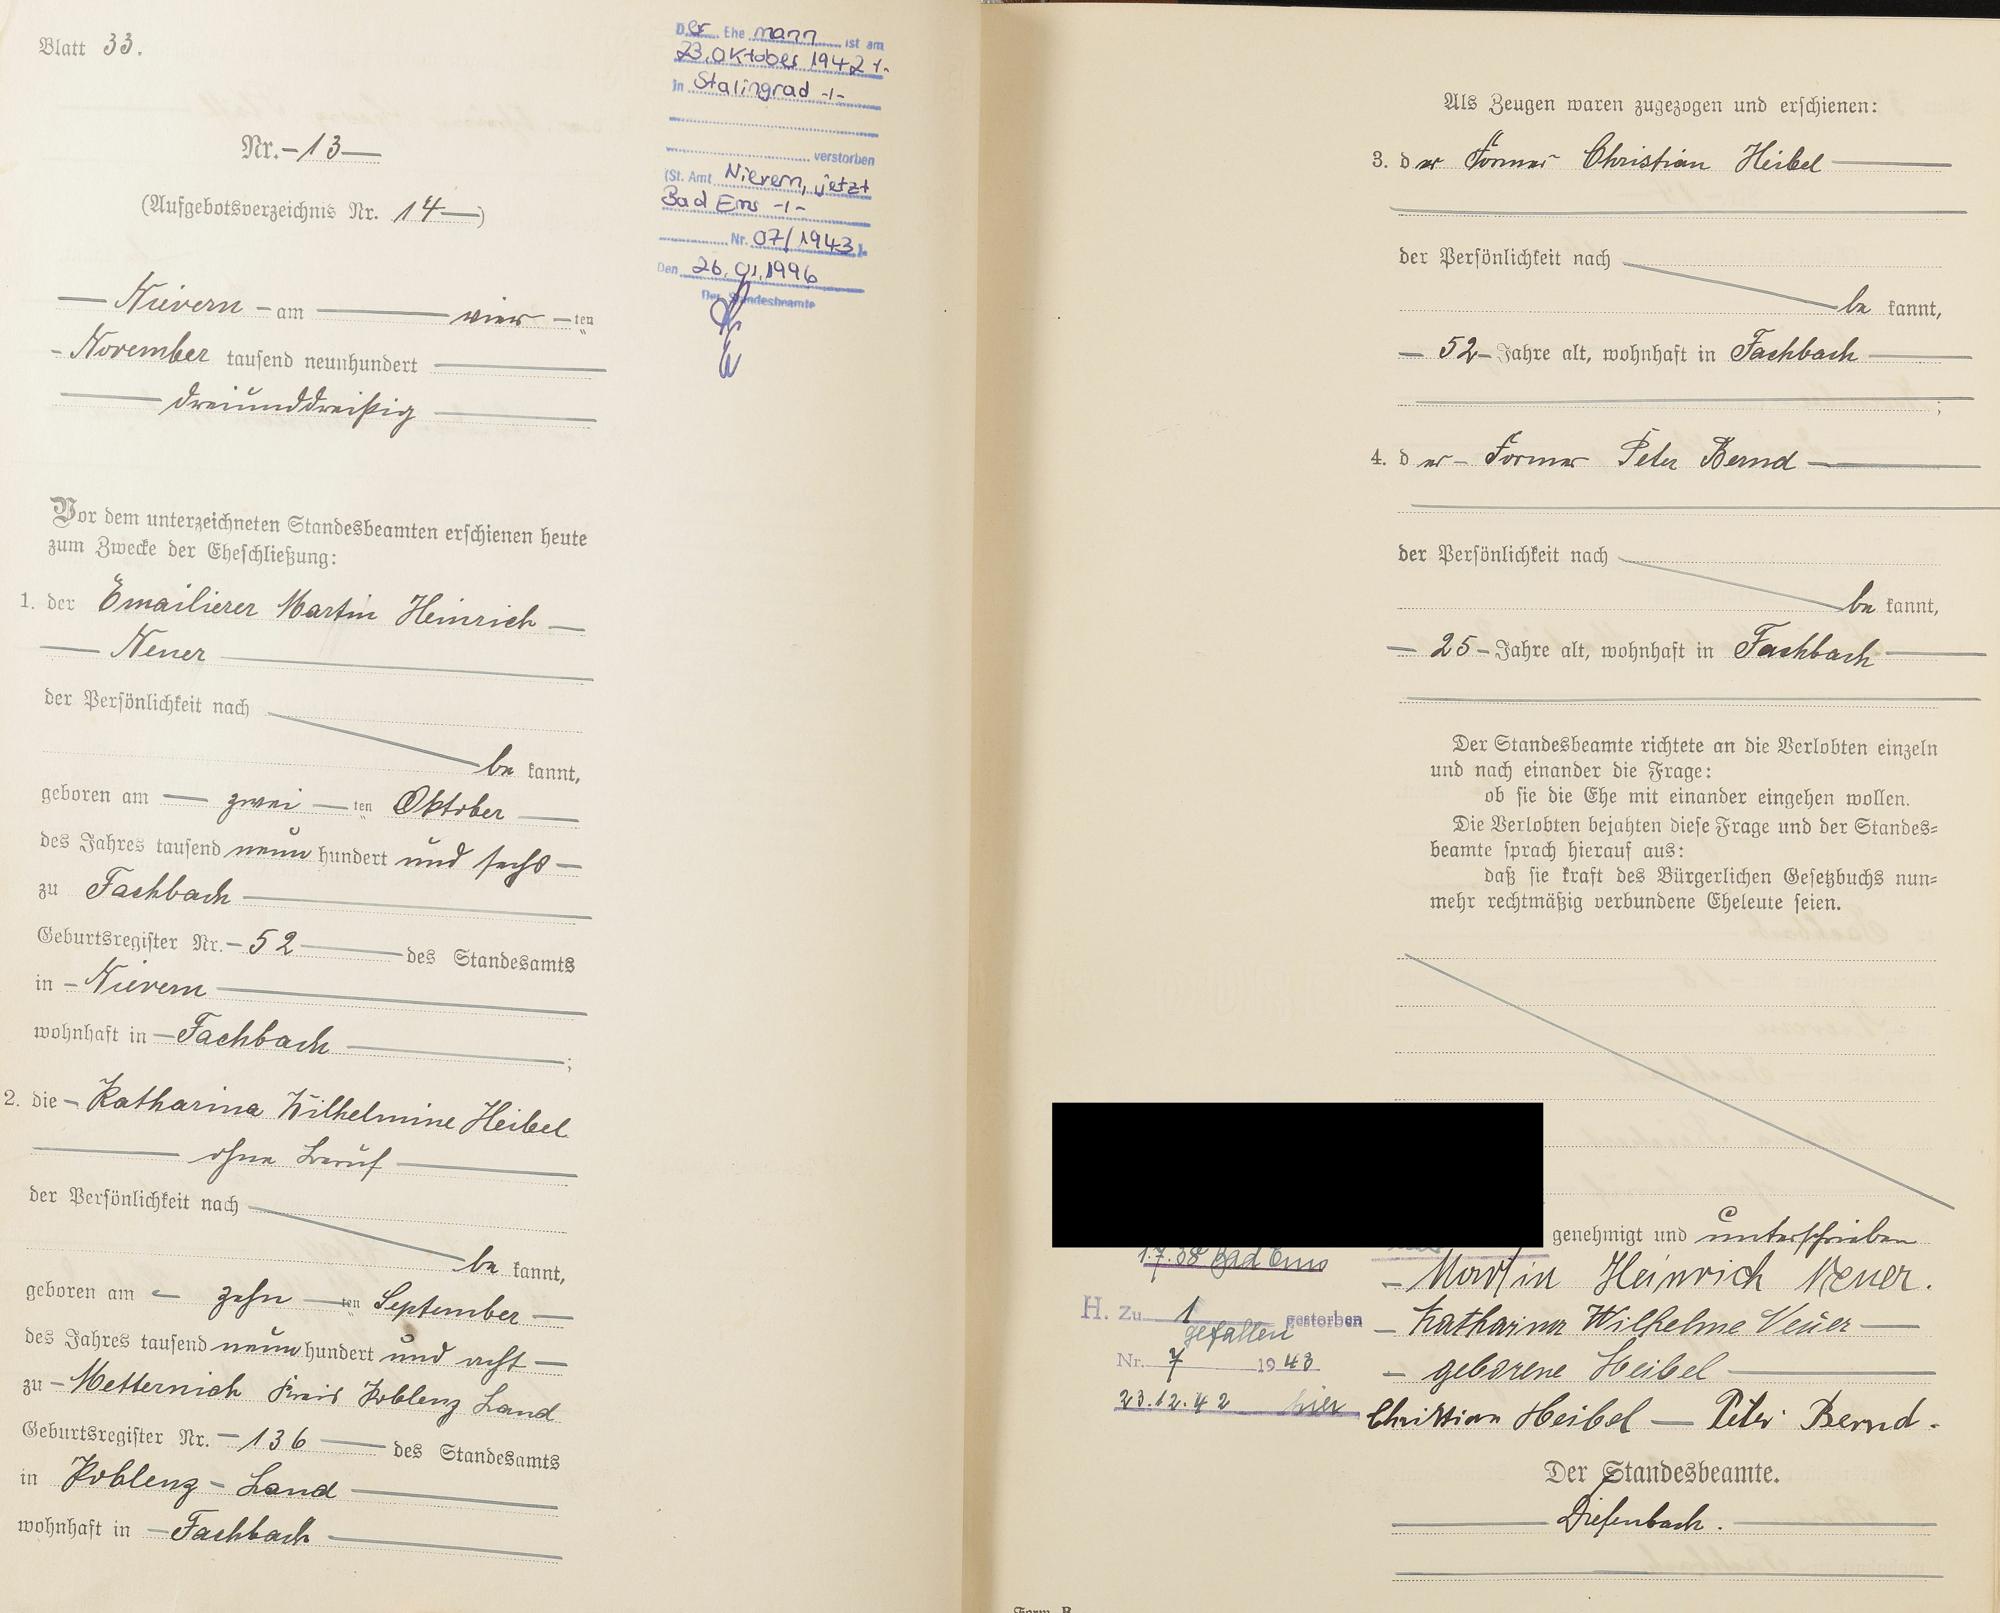 Blatt 33.
Der Ehemann ist am
23. Oktober 1942 -/-
in Stalingrad -/-
verstorben
(St. Amt Nievern, jetzt
Bad Ems -/-
Nr. 07/1943).
Den 26.01.1996
Der Standesbeamte
Nr. - 13 —
(Aufgebotsverzeichnis Nr. 14 —)
— Nievern - am — vier - ten
- November tausend neunhundert —
— dreiunddreißig —
Vor dem unterzeichneten Standesbeamten erschienen heute
zum Zwecke der Eheschließung:
1. der Emailierer Martin Heinrich —
— Neuer —
der Persönlichkeit nach
be kannt,
geboren am — zwei — ten Oktober —
des Jahres tausend neun hundert und sechs —
zu Fachbach —
Geburtsregister Nr. - 52 — des Standesamts
in - Nievern —
wohnhaft in — Fachbach — ;
2. die - Katharina Wilhelmine Heibel
— ohne Beruf —
der Persönlichkeit nach
be kannt,
geboren am — zehn — ten September —
des Jahres tausend neun hundert und acht —
zu - Metternich Kreis Koblenz Land
Geburtsregister Nr. - 136 — des Standesamts
in Koblenz - Land —
wohnhaft in — Fachbach —
Als Zeugen waren zugezogen und erschienen:
3. der Former Christian Heibel —
der Persönlichkeit nach
be kannt,
— 52 - Jahre alt, wohnhaft in Fachbach —
;
4. der - Former Peter Bernd —
der Persönlichkeit nach
be kannt,
— 25 - Jahre alt, wohnhaft in Fachbach —
Der Standesbeamte richtete an die Verlobten einzeln
und nach einander die Frage:
ob sie die Ehe mit einander eingehen wollen.
Die Verlobten bejahten diese Frage und der Standes-
beamte sprach hierauf aus:
daß sie kraft des Bürgerlichen Gesetzbuchs nun-
mehr rechtmäßig verbundene Eheleute seien.
genehmigt und unterschrieben
1.7.38 Bad Ems
- Martin Heinrich Neuer.
H. Zu 1 gestorben
gefallen
Nr. 7 1943
23.12.42 hier
- Katharina Wilhelme Neuer —
- geborene Heibel —
Christian Heibel — Peter Bernd -
Der Standesbeamte.
— Diefenbach. —
Form. B